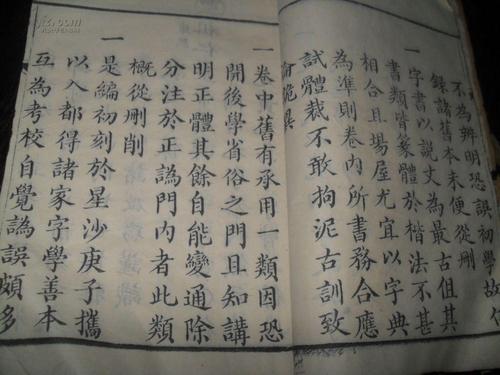 不為辨明恐誤初學故仍
錄諸舊本未便從刪
一字書以說文為最古但其
書類皆篆體於楷法不甚
相合且場屋尤宜以字典
為準則卷內所書務合應
試體裁不敢拘泥古訓致
詭異
一卷中舊有承用一類因恐
開後學省俗之門且知講
明正體其餘自能變通除
分注於正譌門內者此類
概從刪削
一是編初刻於星沙庚子攜
以入都得諸家字學善本
互為考校自覺譌誤頗多